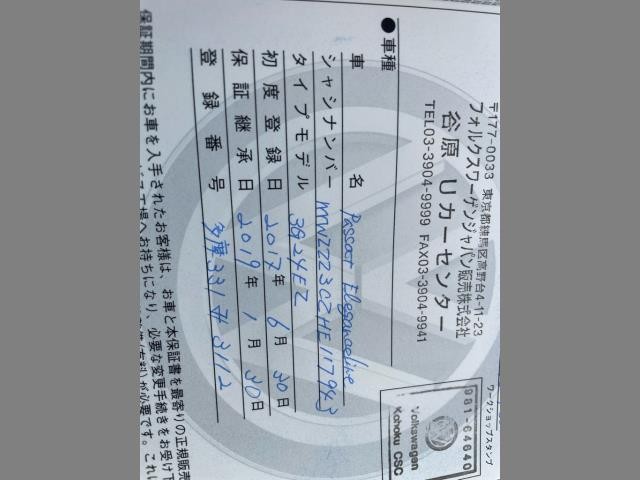 ワークショップスタンプ
981-64640
Volkswagen
Kohoku CSC
〒177-0033 東京都練馬区高野台4-11-23
フォルクスワーゲンジャパン販売株式会社
谷原 Uカーセンター
TEL03-3904-9999 FAX03-3904-9941
●車種
車名 Passat Eleganceline
シャシナンバー WVWZZZ3CZHE117943
タイプモデル 3G24EZ
初度登録日 2017年 6月 30日
保証継承日 2019年 1月 30日
登録番号 多摩331 3112
保証期間内にお車を入手されたお客様は、お車と本保証書を最寄りの正規販売
へお持ちになり、必要な変更手続きをお受け下
(有料)が必要です。これに